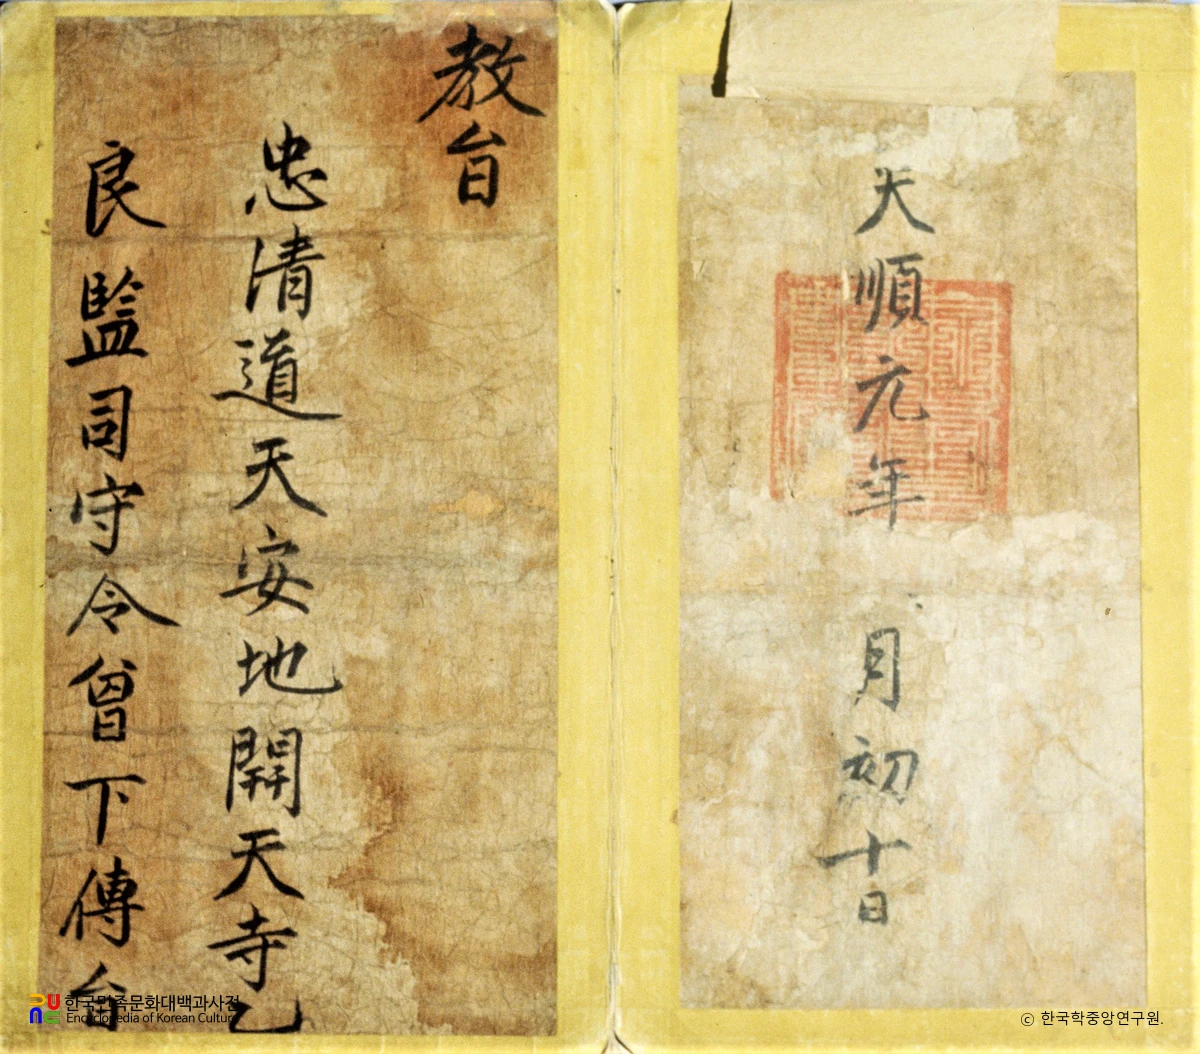 教㫖
忠清道天安地開天寺乙
良監司守令曾下傳㫖
天順元年 月初十日
한국민족문화대백과사전
Encyclopedia of Korean Culture
ⓒ 한국학중앙연구원.